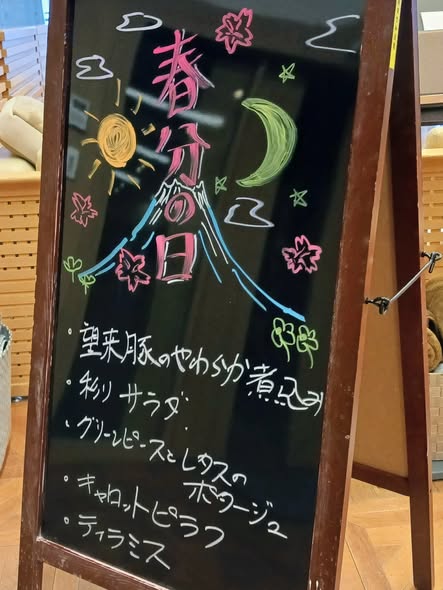 春分の日
・望来豚のやわらか煮込み
・彩りサラダ
・グリーンピースとレタスの
ポタージュ
・キャロットピラフ
・ティラミス